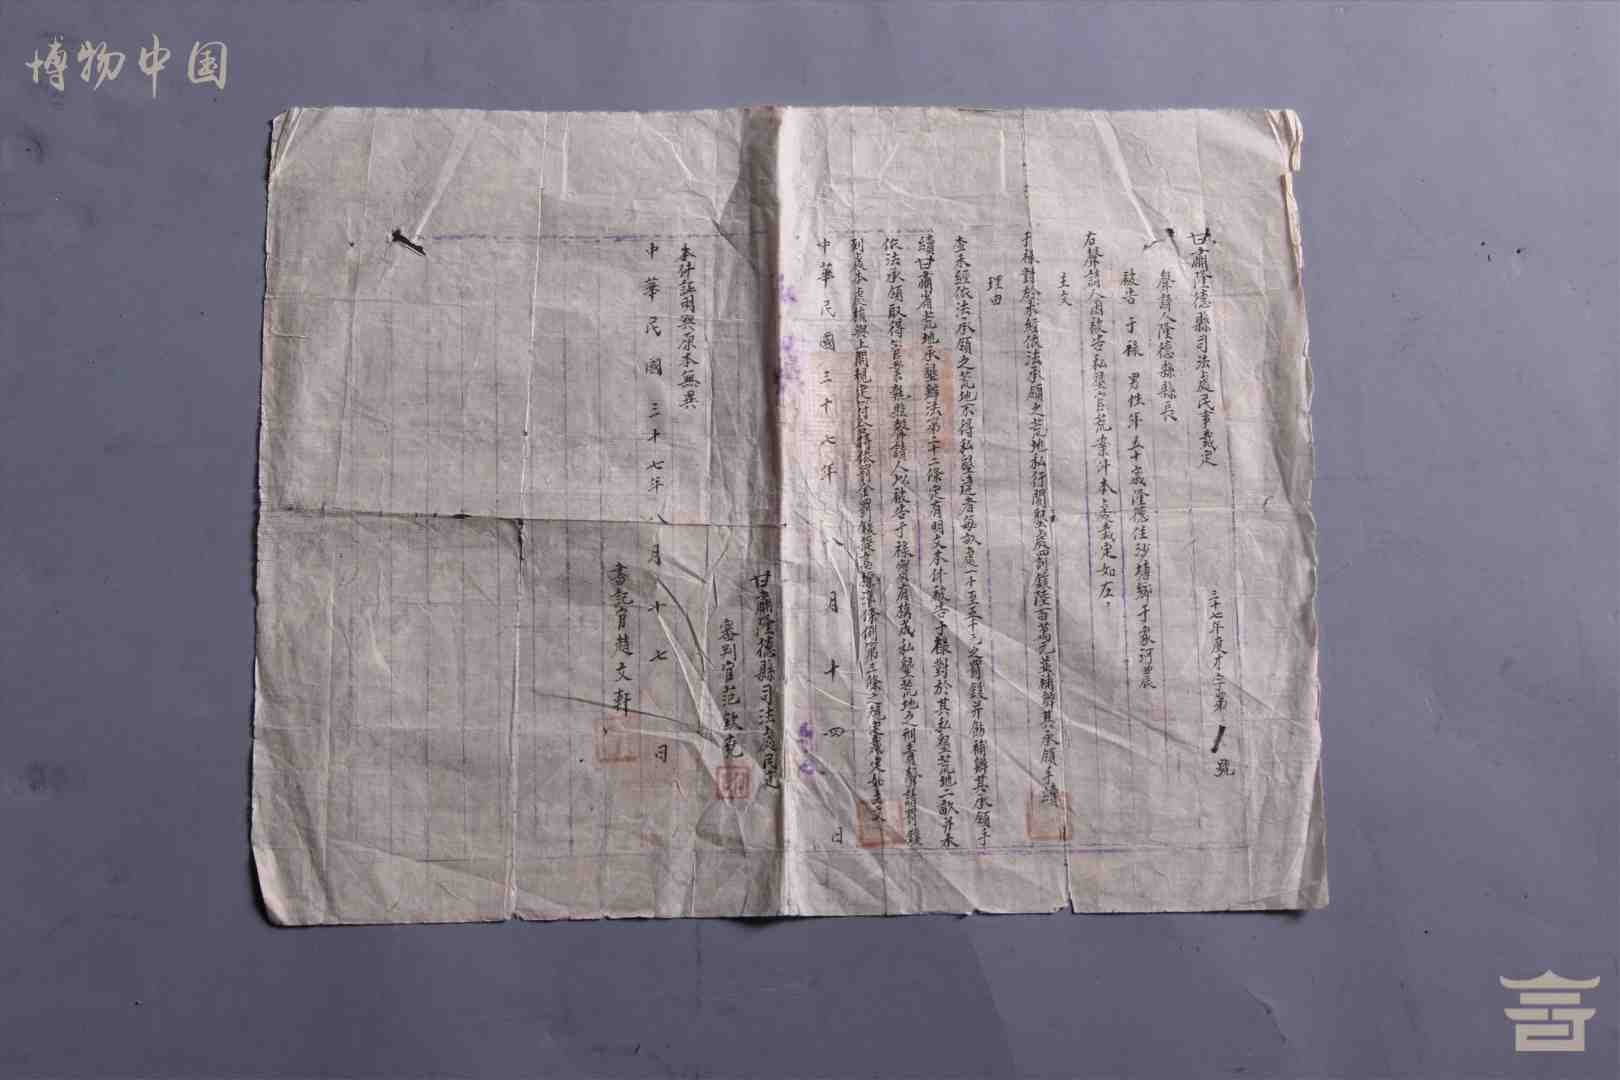 博物中国
甘肅隆德縣司法處民事裁定
三十七年度才字第1號
聲請人隆德縣縣長
被告 于祿 男性年五十歲隆德住沙塘鄉于家河農
右聲請人因被告私墾官荒案件本處裁定如左，
主文
于祿對於未經依法承領之荒地私行開墾處罰鍰陸百萬元並補辦其承領手續
理由
查未經依法承領之荒地不得私墾違者每畝處一十至五十元之罰鍰并飭補辦其承領手
續甘肅省荒地承墾辦法第二十二條定有明文本件被告于祿對於其私墾荒地二畝并未
依法承領取得聲請人以被告于祿實有構成私墾荒地之刑責聲請罰鍰
到處本處核與上開規定例第三條之規定裁定如主文
中華民國三十七年八月十四日
甘肅隆德縣司法處民庭
審判官范欽堯
本件証明與原本無異
中華民國三十七年八月十七日
書記官趙文軒